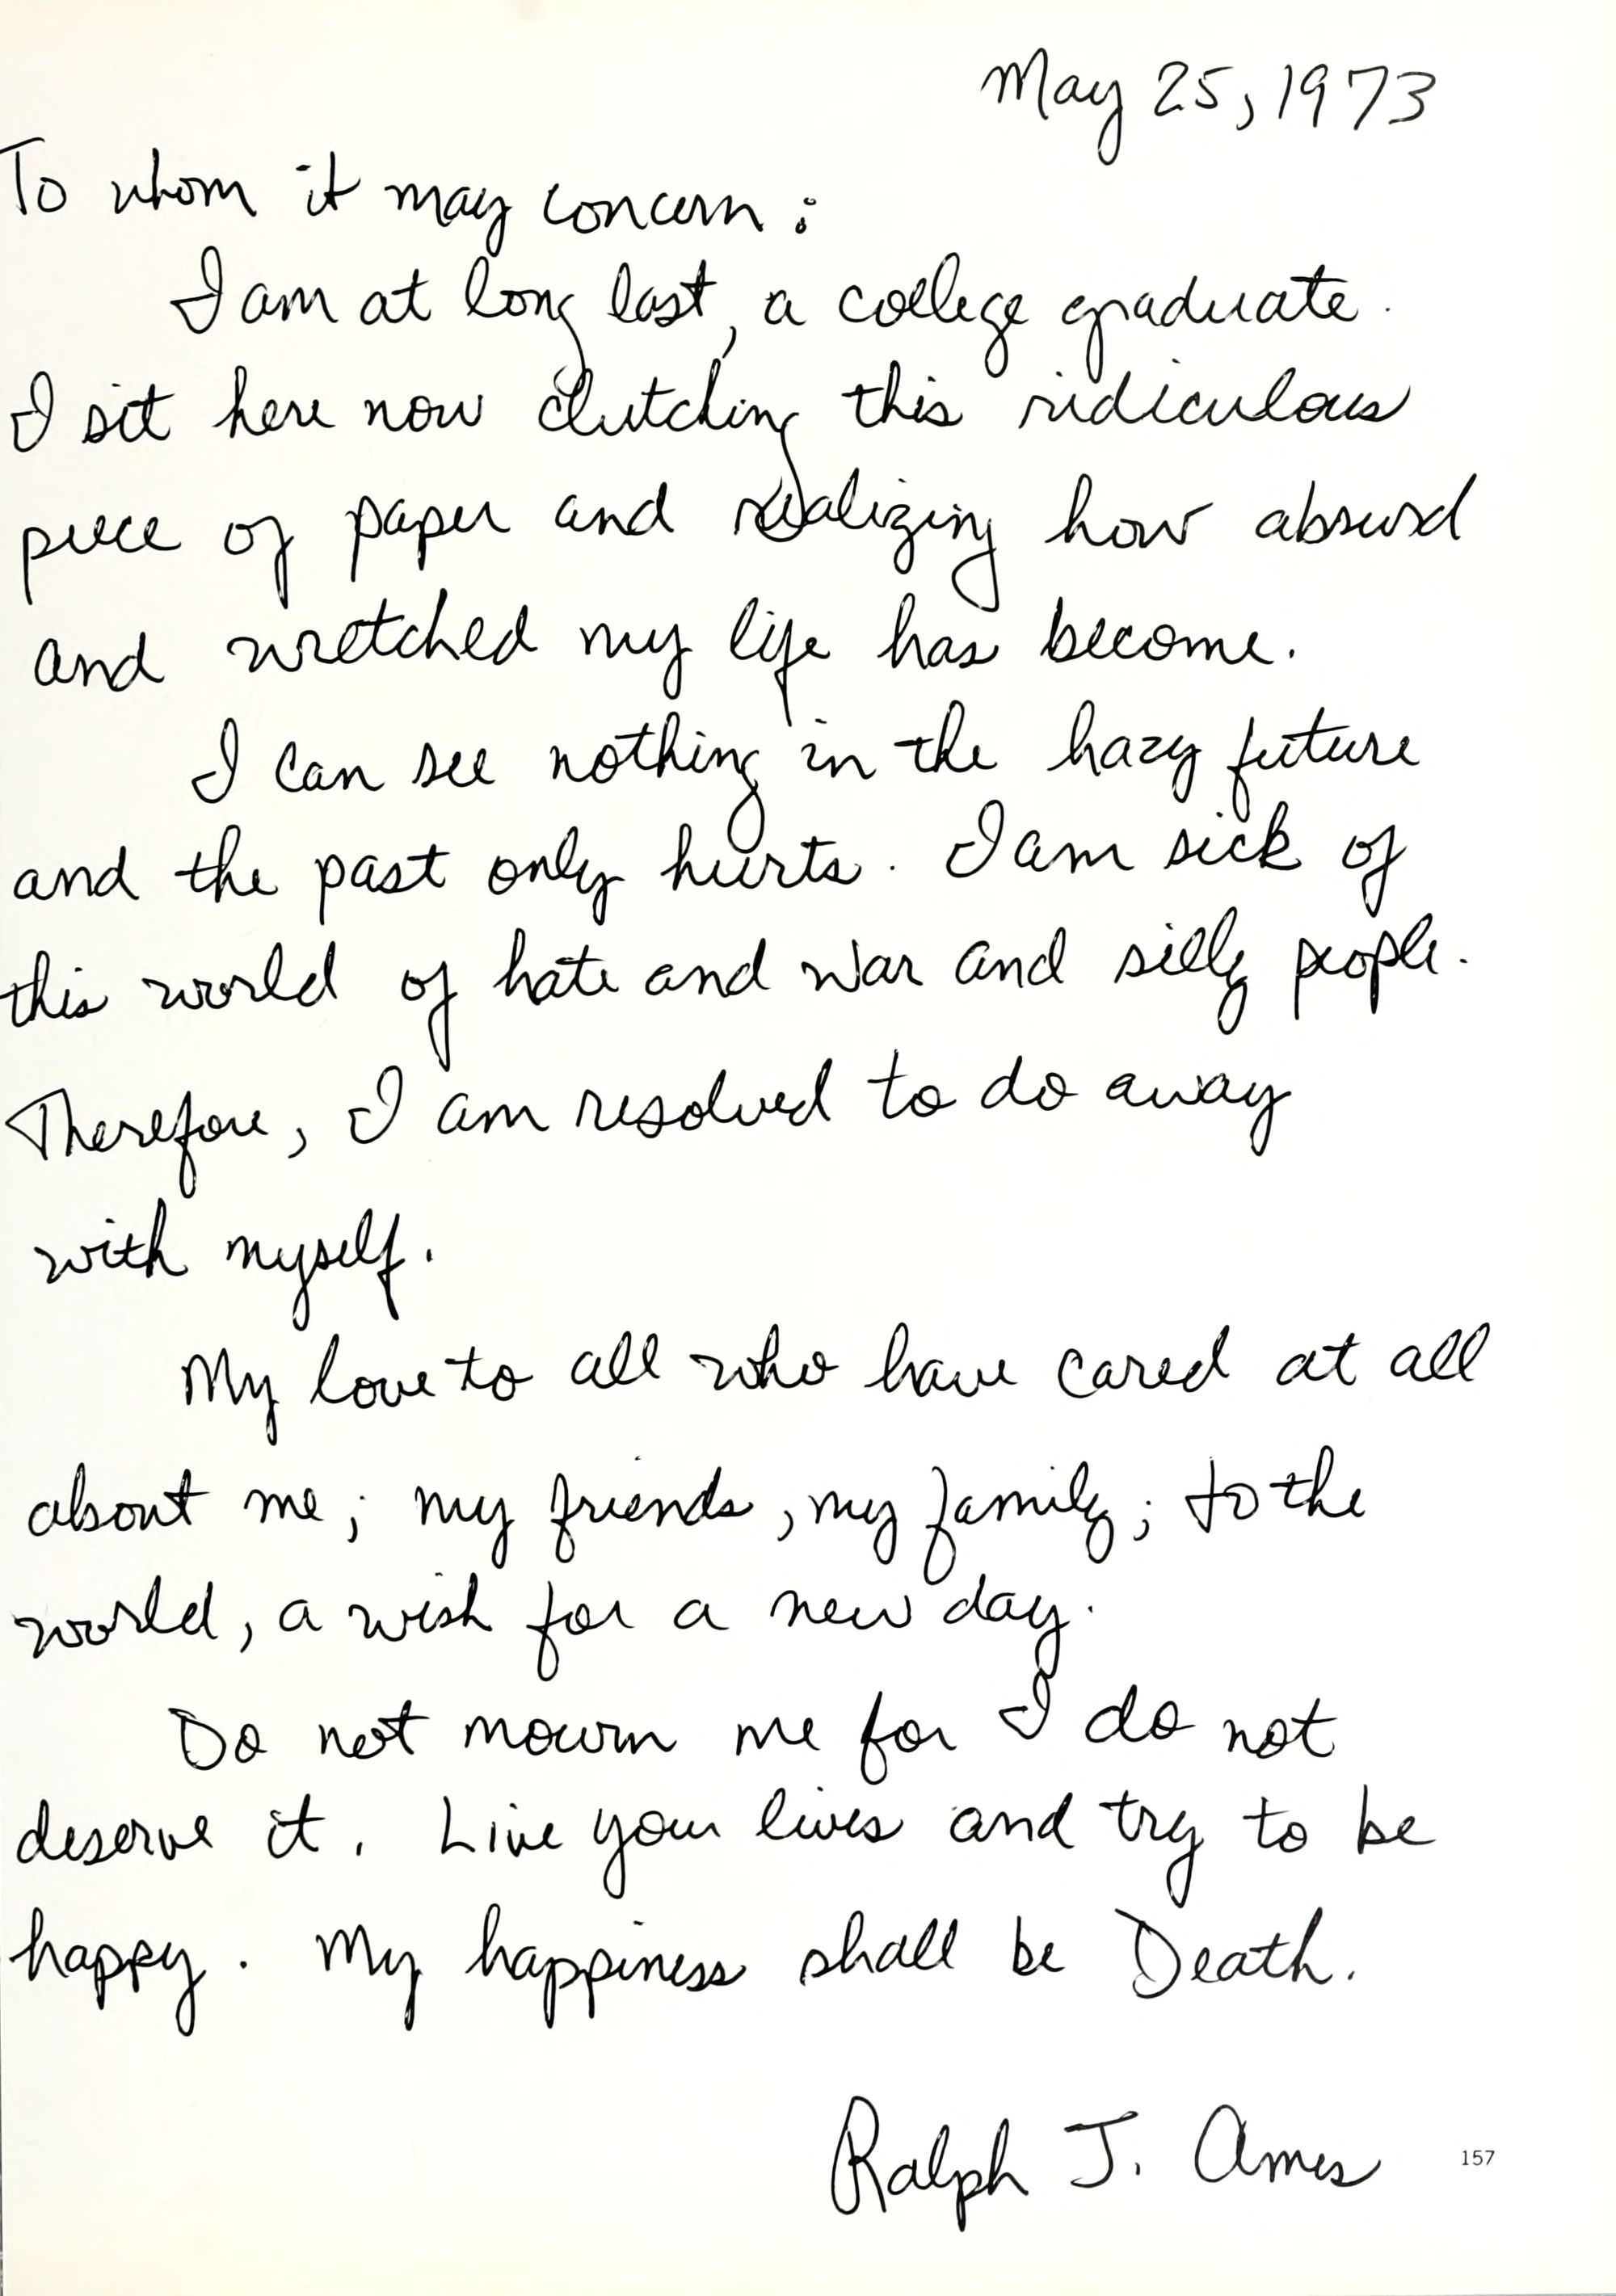 May 25, 1973
To whom it may concern:
I am at long last, a college graduate.
I sit here now clutching this ridiculous
piece of paper and realizing how absurd
and wretched my life has become.
I can see nothing in the hazy future
and the past only hurts. I am sick of
this world of hate and war and silly people.
Therefore, I am resolved to do away
with myself.
My love to all who have cared at all
about me; my friends, my family; to the
world, a wish for a new day.
Do not mourn me for I do not
deserve it. Live your lives and try to be
happy. My happiness shall be Death.
Ralph J. Ames
157